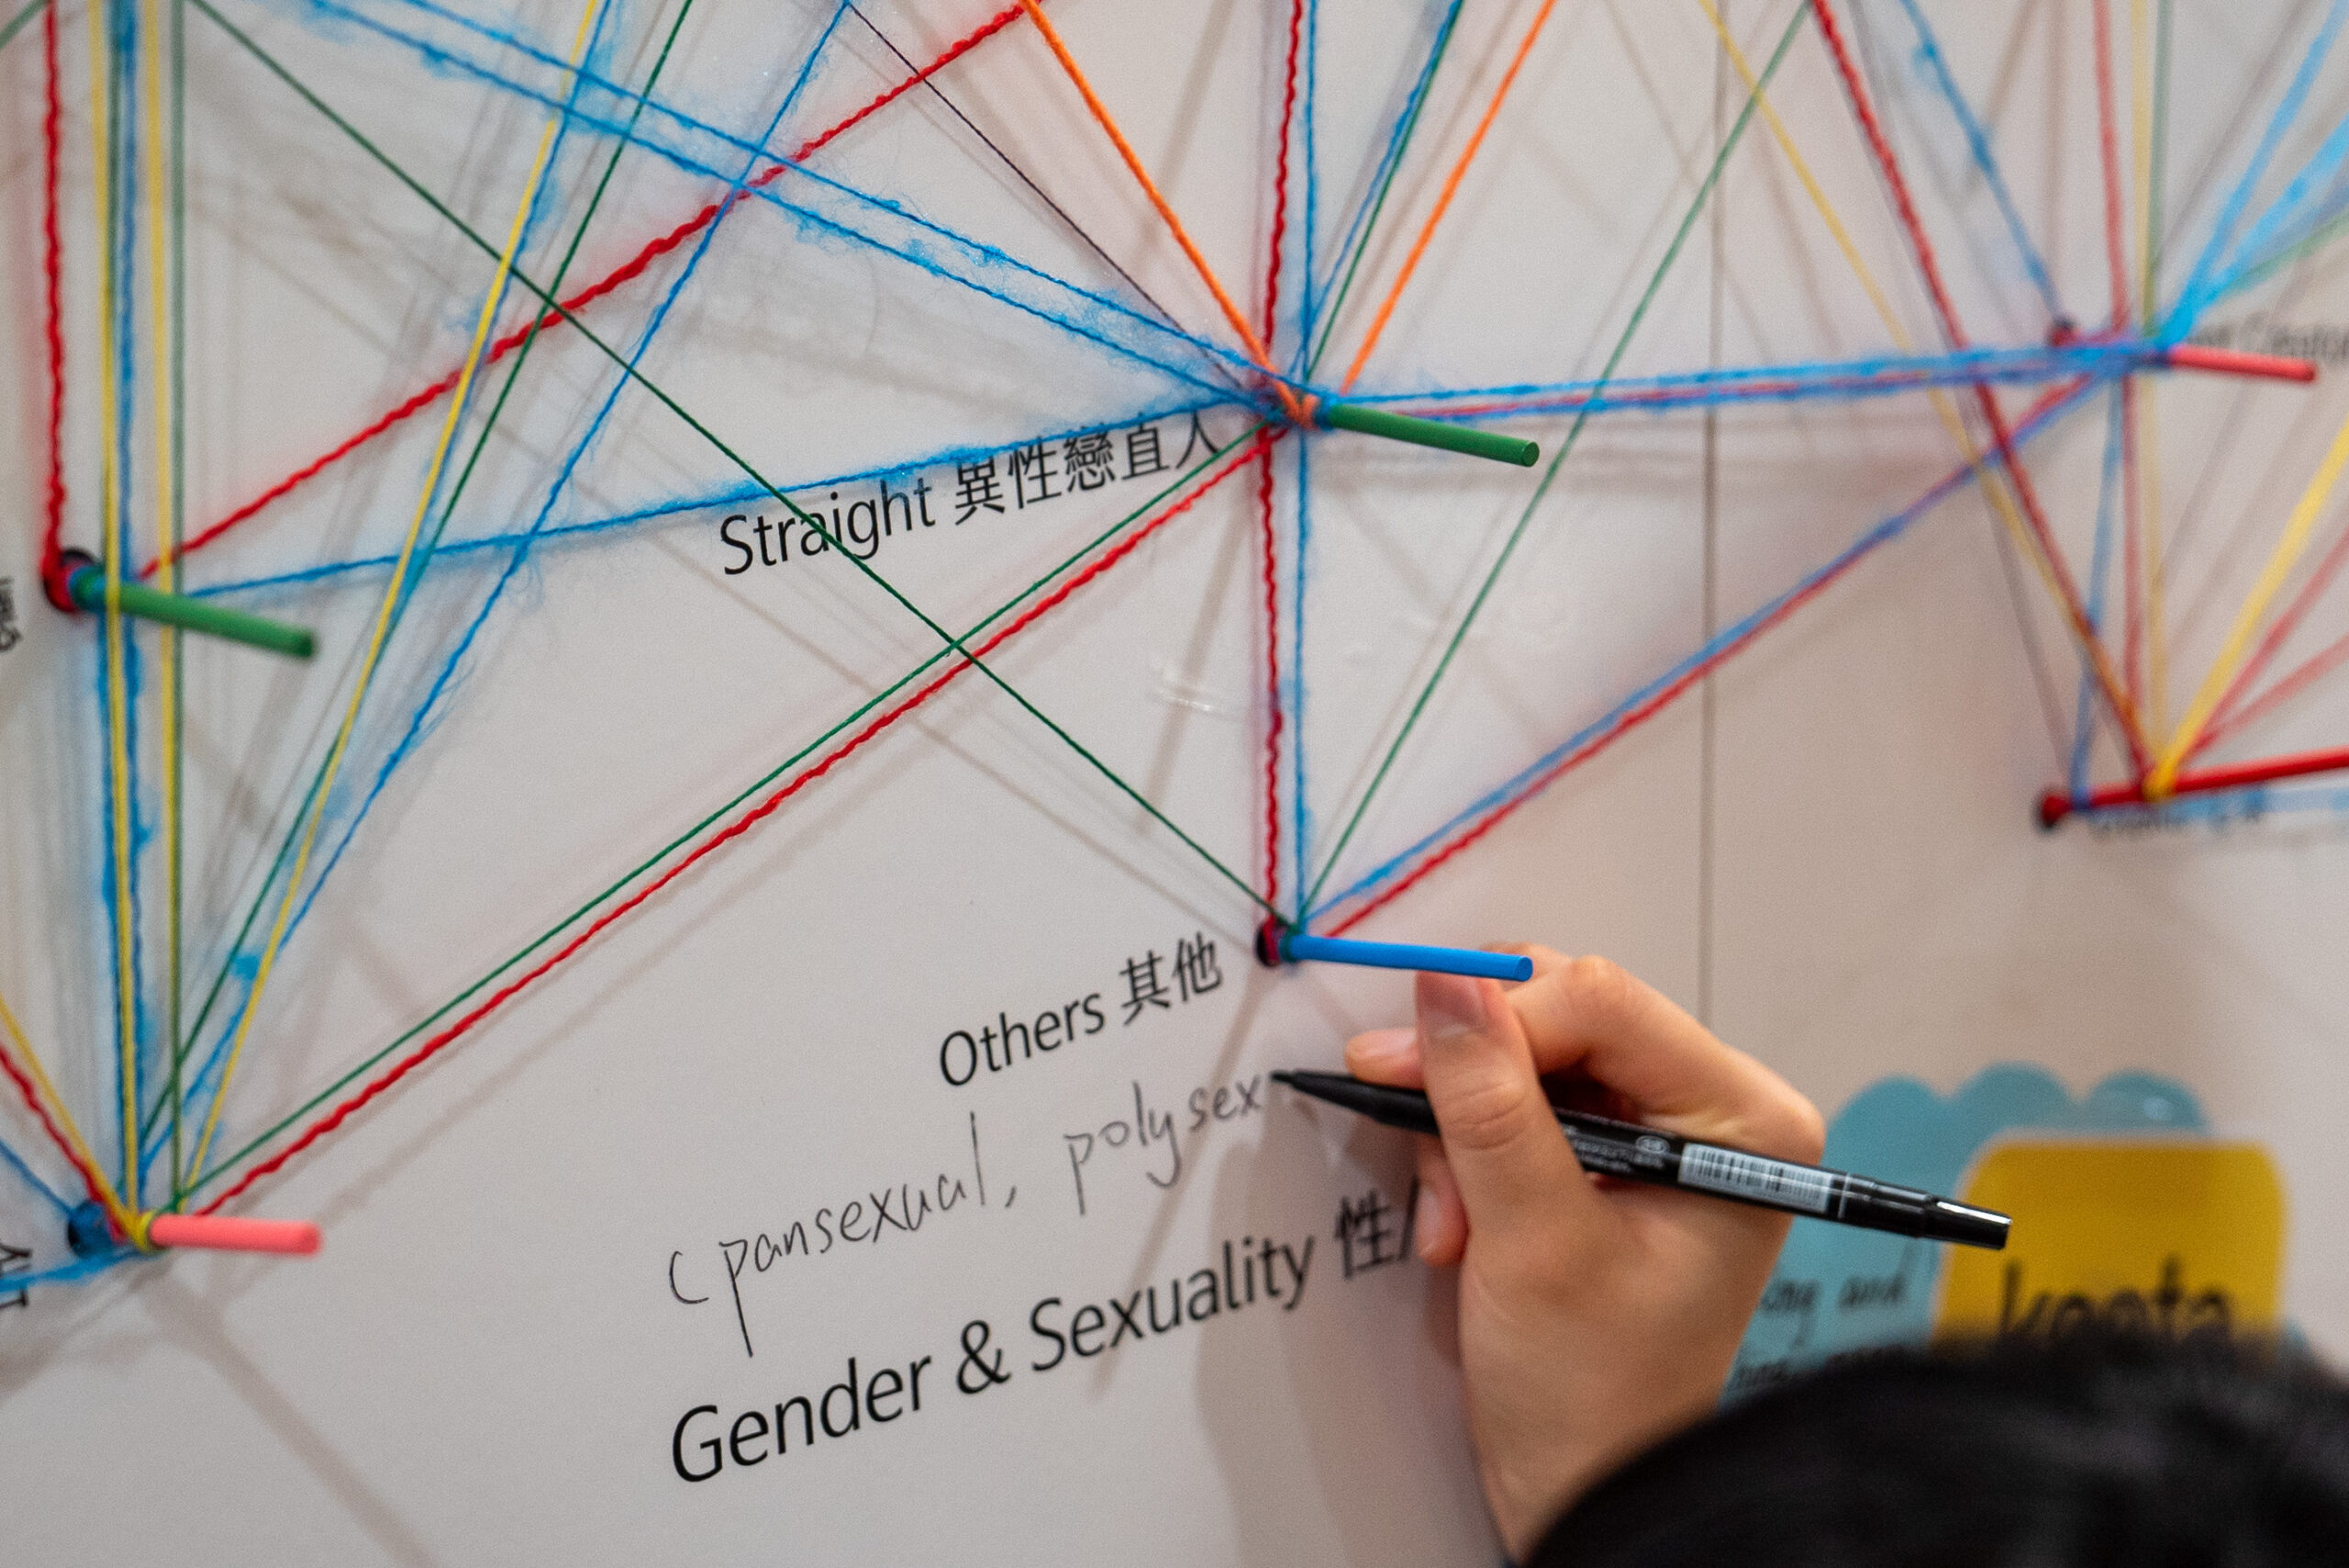 Straight 異性戀直人
Others 其他
(pansexual, polysex
Gender & Sexuality 性/
ong and